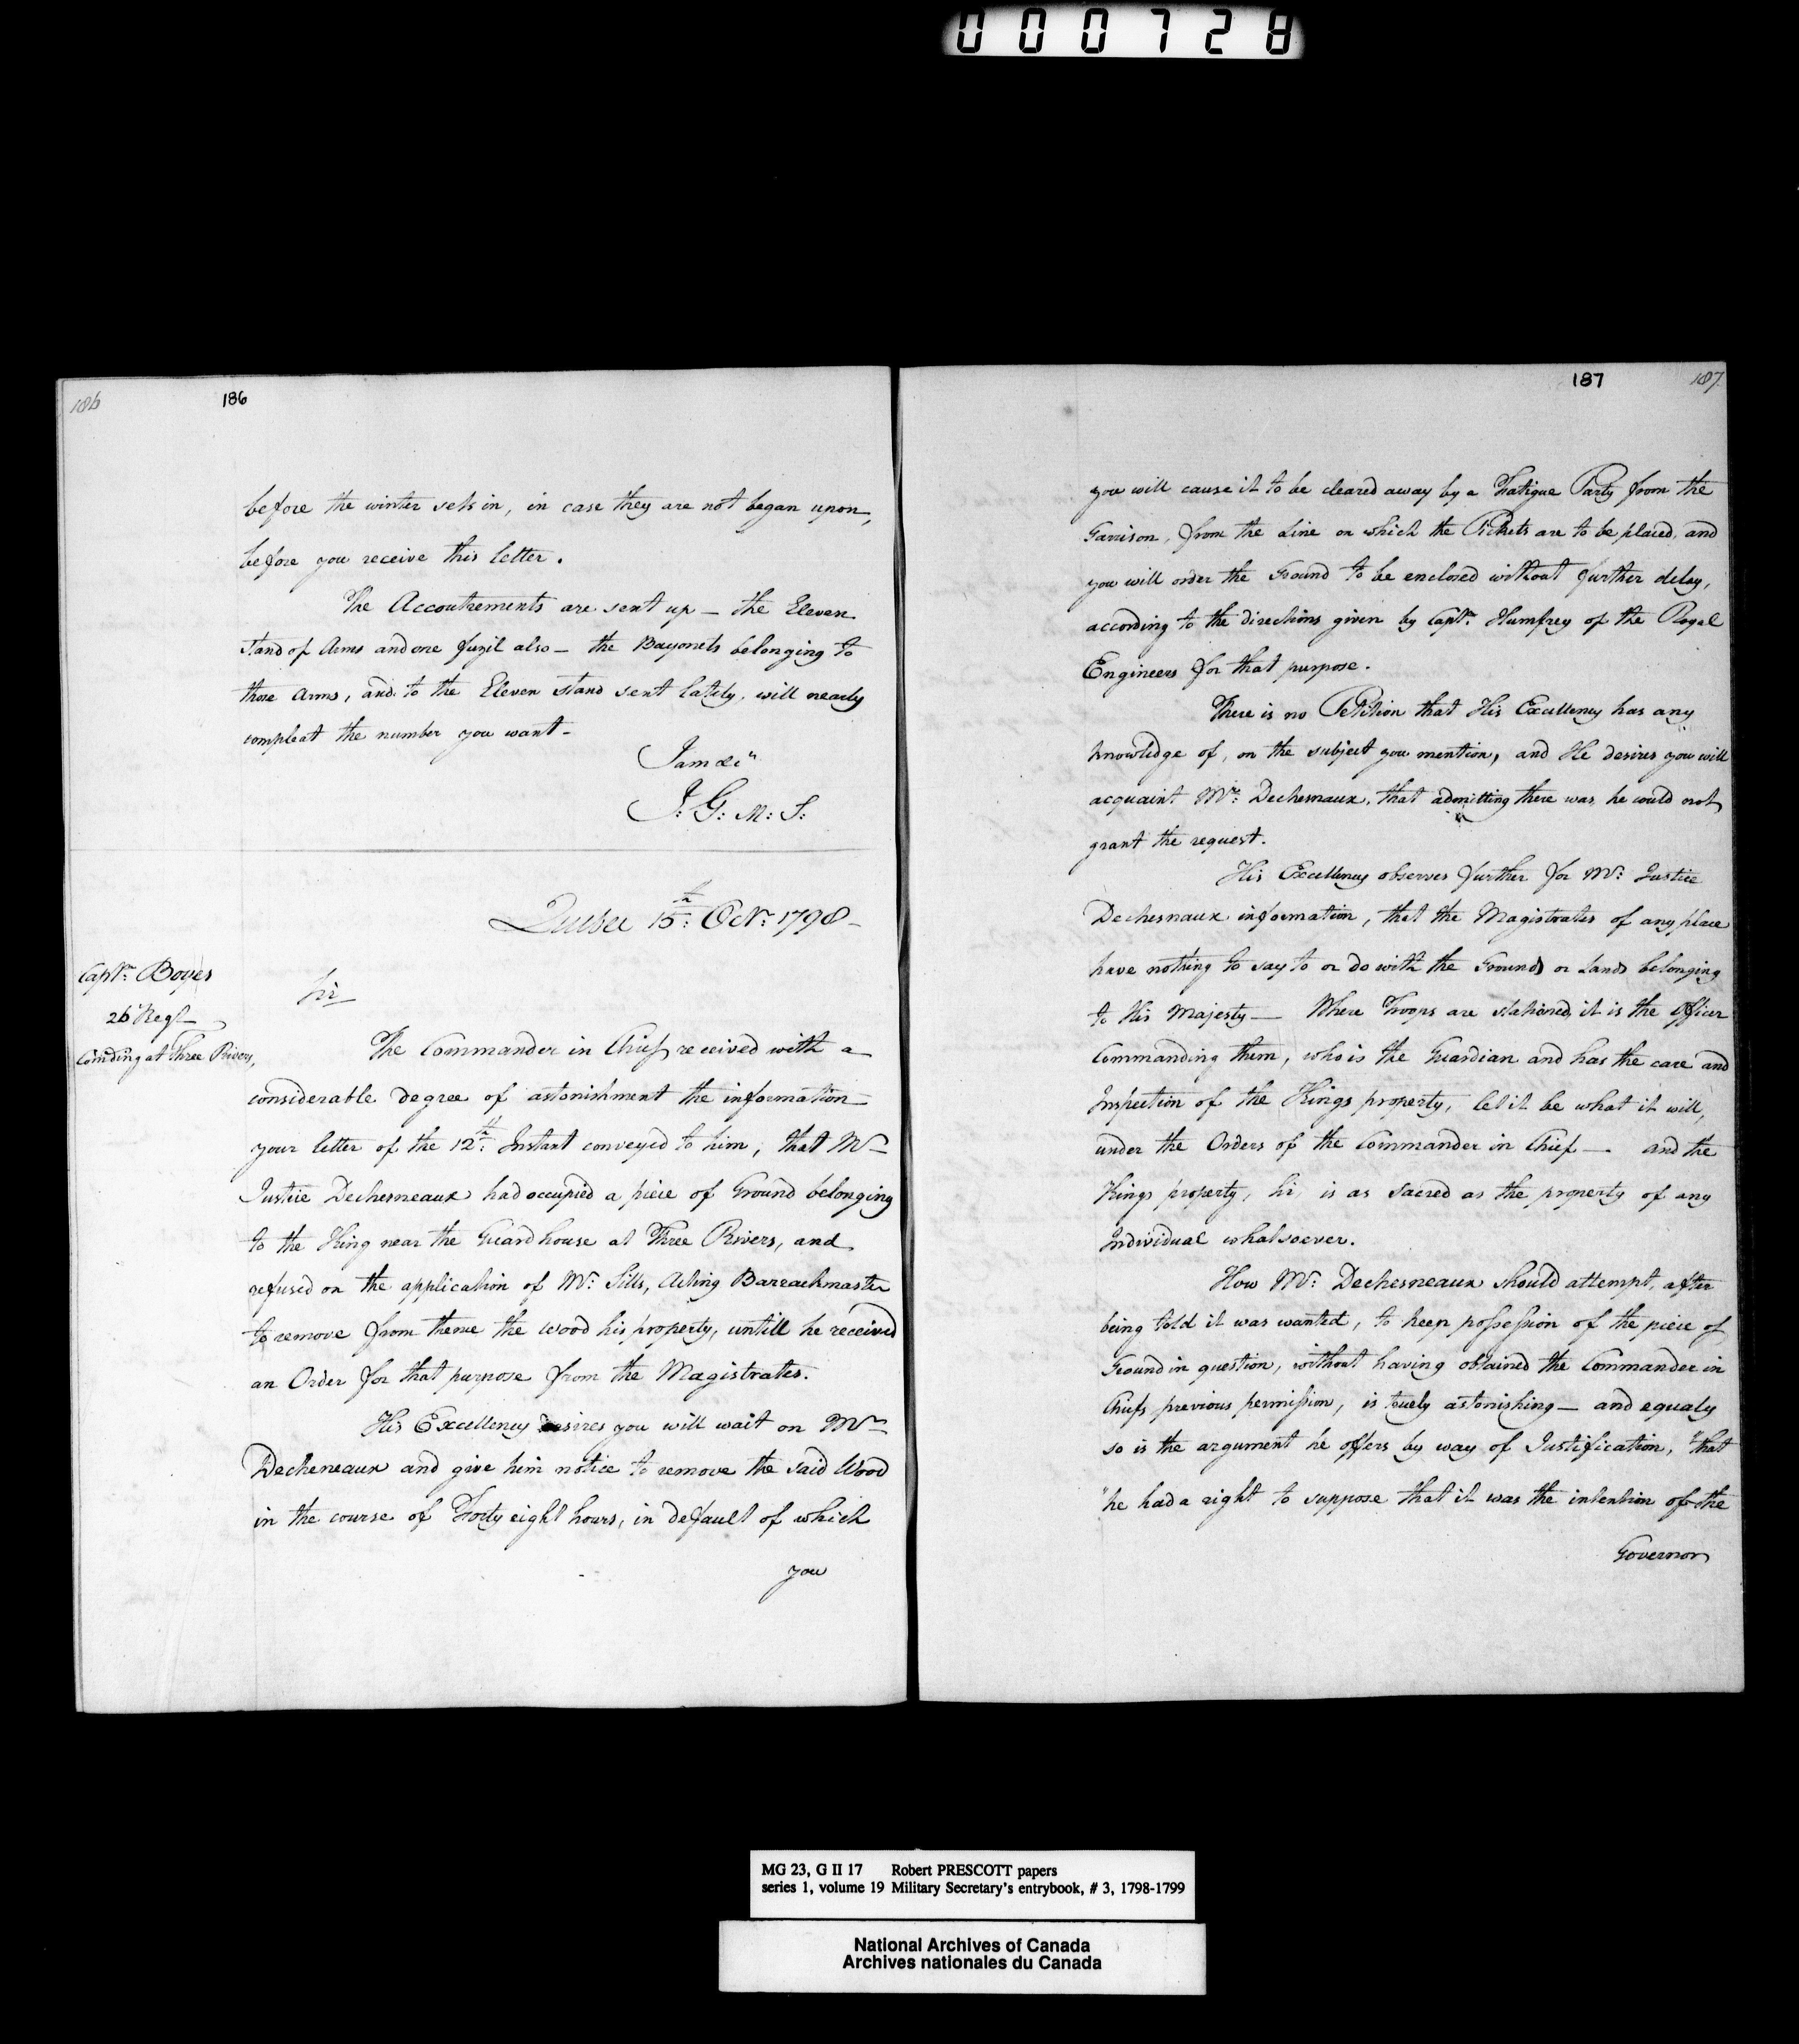 000728
186
186
before the winter sets in, in case they are not began upon,
before you receive this letter.
The Accoutrements are sent up — the Eleven
stand of Arms and one fuzil also — the Bayonets belonging to
those Arms, and to the Eleven stand sent lately, will nearly
compleat the number you want —
I am &c"
J: G: M: S:
Quebec 15th: Octr: 1798 —
Captn: Boyes
26 Regt
Comding at Three Rivers,
Sir
The Commander in Chief received with a
considerable degree of astonishment the information
your letter of the 12th: Instant conveyed to him, that Mr
Justice Dechesneaux had occupied a piece of Ground belonging
to the King near the Guard house at Three Rivers, and
refused on the application of Mr: Sills, Acting Barrackmaster
to remove from thence the Wood his property, untill he received
an Order for that purpose from the Magistrates.
His Excellency desires you will wait on Mr
Decheneaux and give him notice to remove the said Wood
in the course of Forty eight hours, in default of which
you
187
187
you will cause it to be cleared away by a Fatigue Party from the
Garrison, from the Line on which the Pickets are to be placed, and
you will order the Ground to be enclosed without further delay,
according to the directions given by Captn: Humfrey of the Royal
Engineers for that purpose.
There is no Petition that His Excellency has any
knowledge of, on the subject you mention, and He desires you will
acquaint Mr: Dechesnaux, that admitting there was, he would not
grant the request.
His Excellency observes further for Mr: Justice
Dechesnaux information, that the Magistrates of any place
have nothing to say to or do with the Grounds or Lands belonging
to His Majesty — Where Troops are stationed, it is the Officer
Commanding them, who is the Guardian and has the care and
Inspection of the Kings property, let it be what it will,
under the Orders of the Commander in Chief — and the
Kings property, Sir, is as sacred as the property of any
Individual whatsoever.
How Mr: Dechesneaux should attempt, after
being told it was wanted, to keep possession of the piece of
Ground in question, without having obtained the Commander in
Chiefs previous permission, is truely astonishing — and equaly
so is the argument he offers by way of Justification, "that
"he had a right to suppose that it was the intention of the
Governor
MG 23, G II 17 Robert PRESCOTT papers
series 1, volume 19 Military Secretary's entrybook, # 3, 1798-1799
National Archives of Canada
Archives nationales du Canada